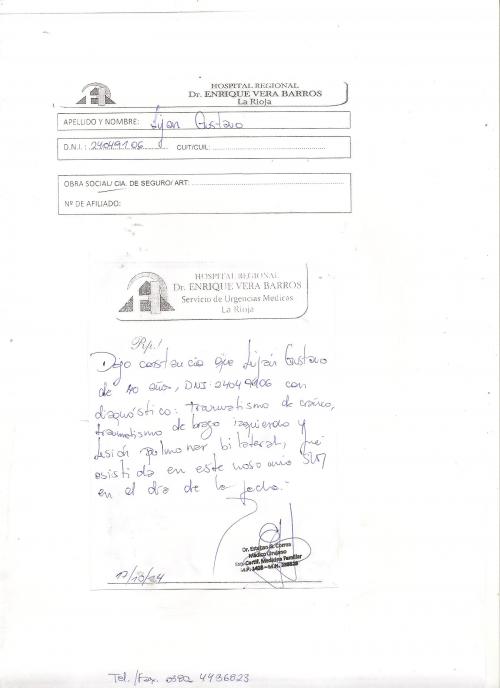 HOSPITAL REGIONAL
Dr. ENRIQUE VERA BARROS
La Rioja
APELLIDO Y NOMBRE: Lijan Gustavo
D.N.I.: 24049106 CUIT/CUIL:
OBRA SOCIAL/ CIA. DE SEGURO/ ART:
Nº DE AFILIADO:
HOSPITAL REGIONAL
Dr. ENRIQUE VERA BARROS
Servicio de Urgencias Medicas
La Rioja
Rp.!
Dejo constancia que Lijan Gustavo
de 40 años, DNI: 24049106 con
diagnóstico: traumatismo de cráneo,
traumatismo de brazo izquierdo y
lesión pulmonar bilateral, fué
asistida en este nosocomio
en el dia de la fecha.-
Dr. Esteban
Médico Cirujano
Certif. Medicina Familiar
Tel./Fax. 4936823